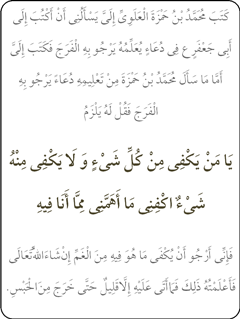 كَتَبَ مُحَمَّدُ بْنُ حَمْزَةَ الْعَلَوِيُّ إِلَيَّ يَسْأَلُنِي أَنْ أَكْتُبَ إِلَى
أَبِي جَعْفَرٍ ع فِي دُعَاءٍ يُعَلِّمُهُ يَرْجُو بِهِ الْفَرَجَ فَكَتَبَ إِلَيَّ
أَمَّا مَا سَأَلَ مُحَمَّدُ بْنُ حَمْزَةَ مِنْ تَعْلِيمِهِ دُعَاءً يَرْجُو بِهِ
الْفَرَجَ فَقُلْ لَهُ يَلْزَمُ
يَا مَنْ يَكْفِي مِنْ كُلِّ شَيْءٍ وَ لَا يَكْفِي مِنْهُ
شَيْءٌ اكْفِنِي مَا أَهَمَّنِي مِمَّا أَنَا فِيهِ
فَإِنِّي أَرْجُو أَنْ يُكْفَى مَا هُوَ فِيهِ مِنَ الْغَمِّ إِنْ شَاءَ اللَّهُ تَعَالَى
فَأَعْلَمْتُهُ ذَلِكَ فَمَا أَتَى عَلَيْهِ إِلَّا قَلِيلٌ حَتَّى خَرَجَ مِنَ الْحَبْسِ.